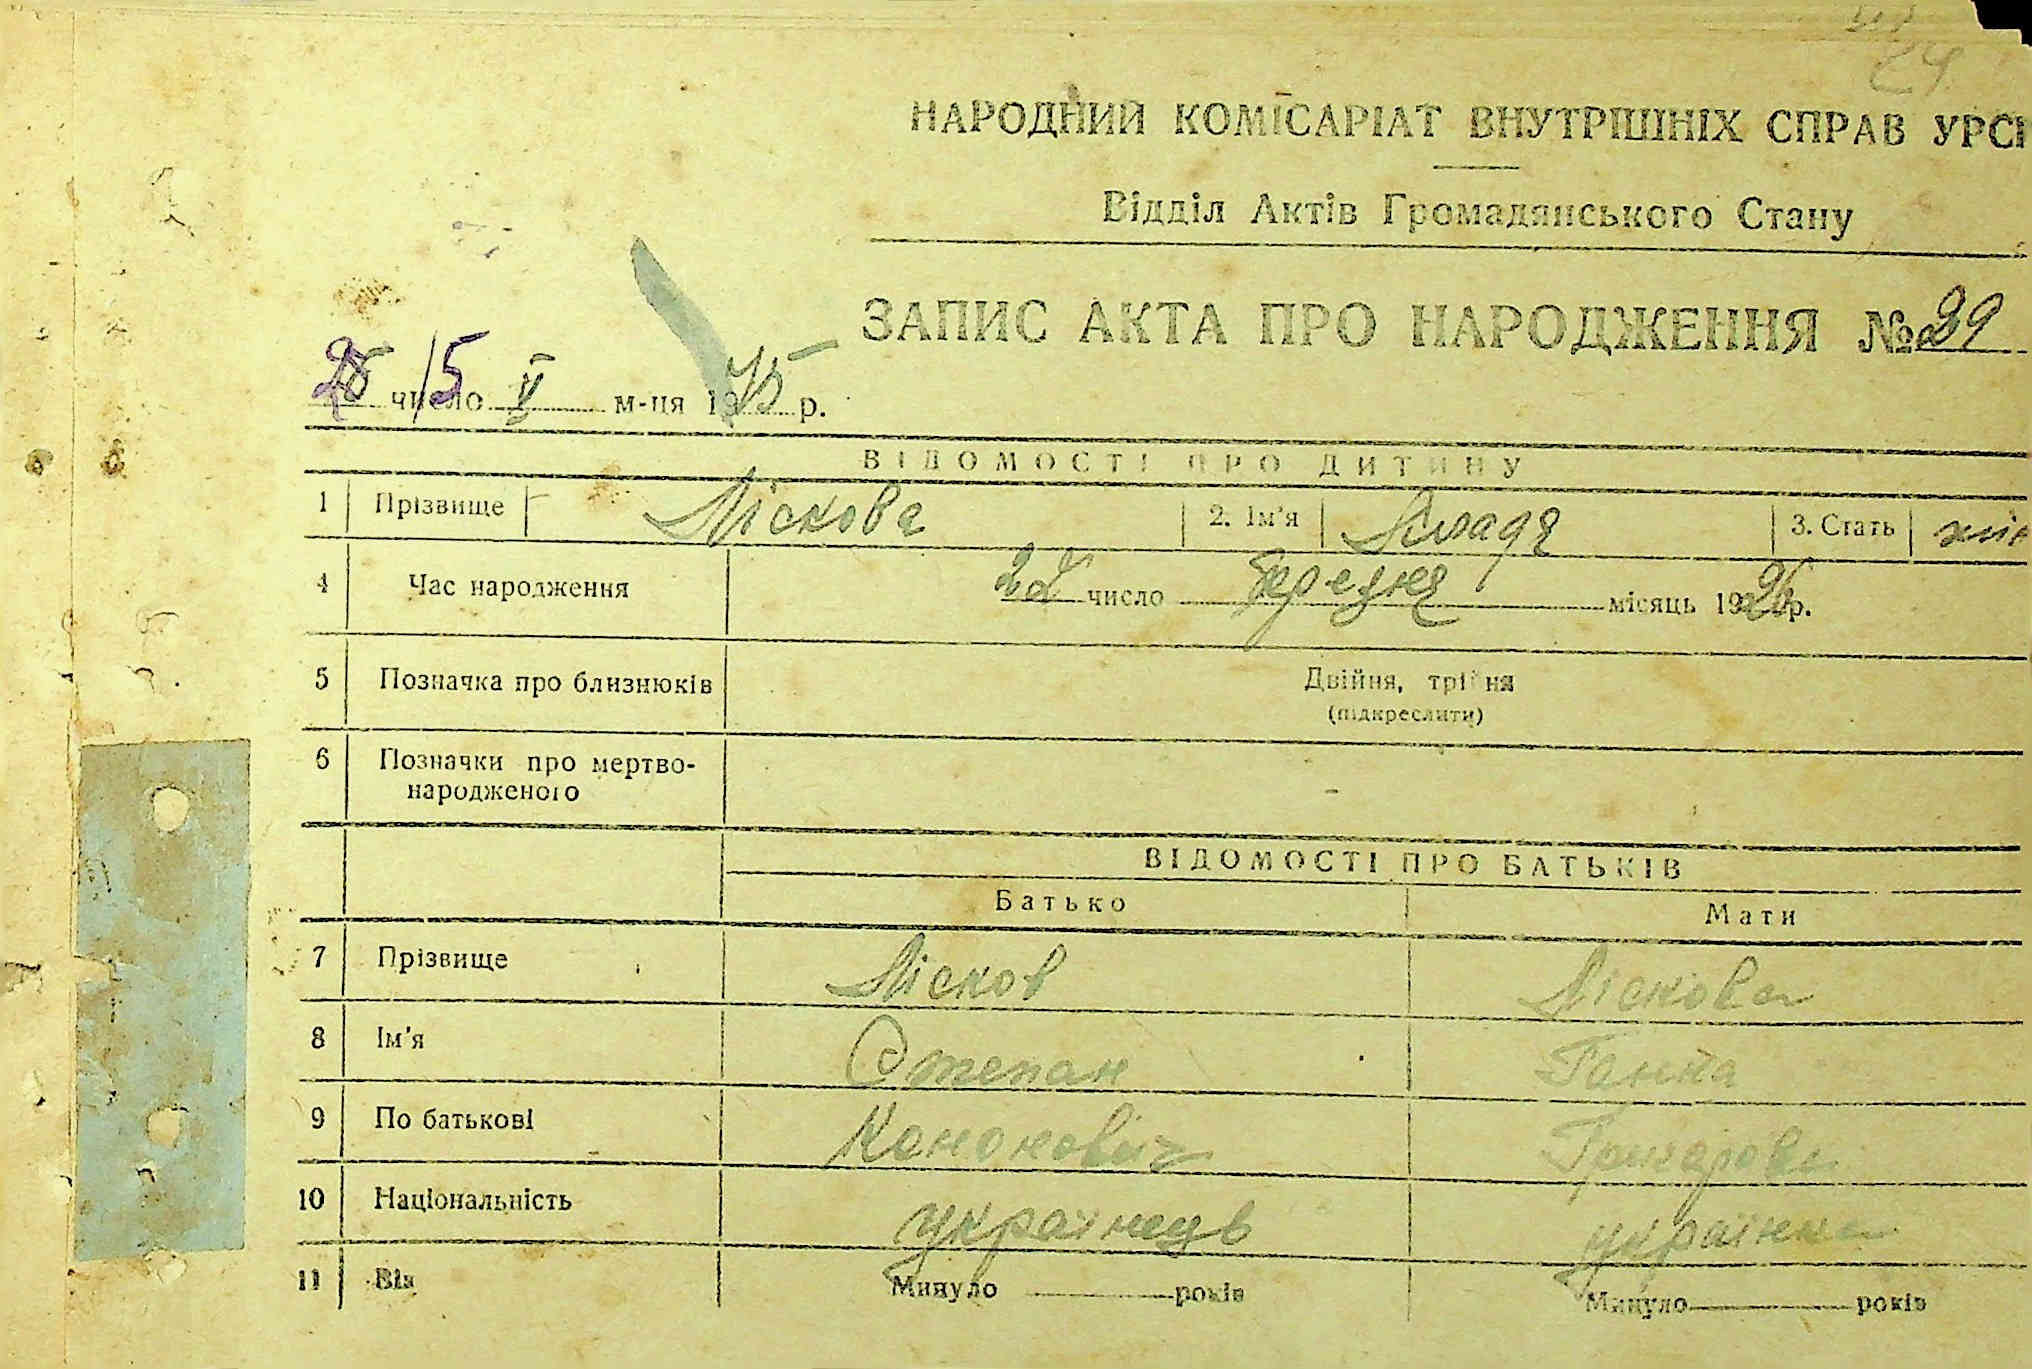 24
НАРОДНИЙ КОМІСАРІАТ ВНУТРІШНІХ СПРАВ УРСР
Відділ Актів Громадянського Стану
ЗАПИС АКТА ПРО НАРОДЖЕННЯ № 29
число 15 V м-ця 1945 р.
ВІДОМОСТІ ПРО ДИТИНУ
1 Прізвище Ліскова 2. Ім'я 3. Стать жін
4 Час народження 22 число березня місяць 1926 р.
5 Позначка про близнюків Двійня, трійня
(підкреслити)
6 Позначки про мертво-
народженого
ВІДОМОСТІ ПРО БАТЬКІВ
Батько Мати
7 Прізвище Лісков Ліскова
8 Ім'я Степан Ганна
9 По батькові Кононович
10 Національність українець українка
11 Вік Минуло років Минуло років